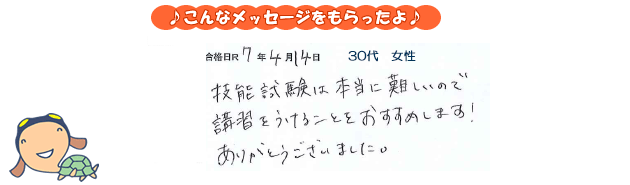 ♪こんなメッセージをもらったよ♪
合格日R 7 年 4 月 14 日 30代 女性
技能試験は本当に難しいので
講習をうけることをおすすめします!
ありがとうございました。